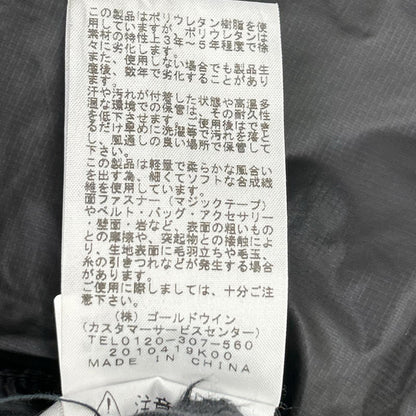 この製品はポリウレタン樹脂を使
用しています。ポリウレタンは
素材の特性上3年～5年程度で徐
々に劣化します。
また、使用しない場合でも製品生
産後、数年で劣化することがあり
ます。
汗や汚れが付着した状態や高温多
湿な環境での保管は、その耐久性
を低下させます。使用後はできる
だけ早めに洗濯等で汚れを落と
し、風通しの良い場所で保管して
下さい。
この製品は軽量で柔らかな風合い
を出す為、細くてソフトな合成繊
維を使用しています。
面ファスナー（マジックテープ）
やベルト・バッグ・アクセサリー
・壁面・岩など、表面の粗いもの
との摩擦や、突起物との接触によ
り、生地表面に毛羽立ちや毛玉、
糸の引きつれなどが発生する場合
があります。
ご使用に際しましては、十分ご注
意下さい。
（株）ゴールドウイン
（カスタマーサービスセンター）
TEL0120-307-560
2010419K00
MADE IN CHINA
注意